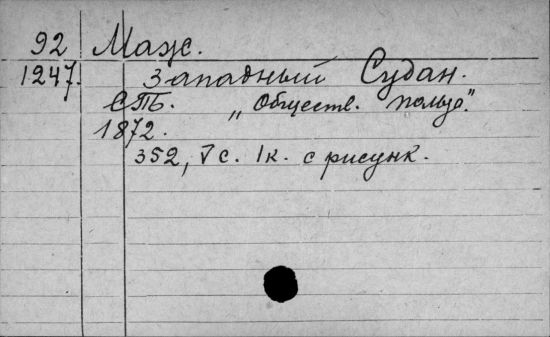 92 Маж.
1247. Западный Судан.
СПБ. "Обществ. польза".
1872.
352, V с. 1к. с рисунк.